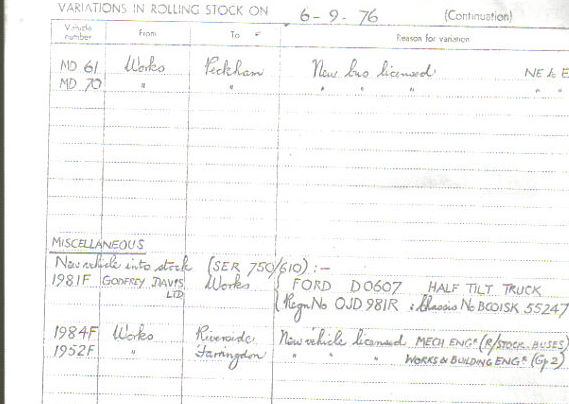 VARIATIONS IN ROLLING STOCK ON 6-9-76 (Continuation)
Vehicle number From To Reason for variation
MD 61 Works Peckham New bus licensed NE to E
MD 70 " " " " " " "
MISCELLANEOUS
New vehicle into stock (SER 750/610) :-
1981F GODFREY DAVIS LTD Works { FORD D0607 HALF TILT TRUCK
Regn No OJD 981R & Chassis No BC01SK 55247
1984F Works Riverside New vehicle licensed MECH ENGR (R/STOCK BUSES)
1952F " Farringdon " " " WORKS & BUILDING ENGR (Gp 2)